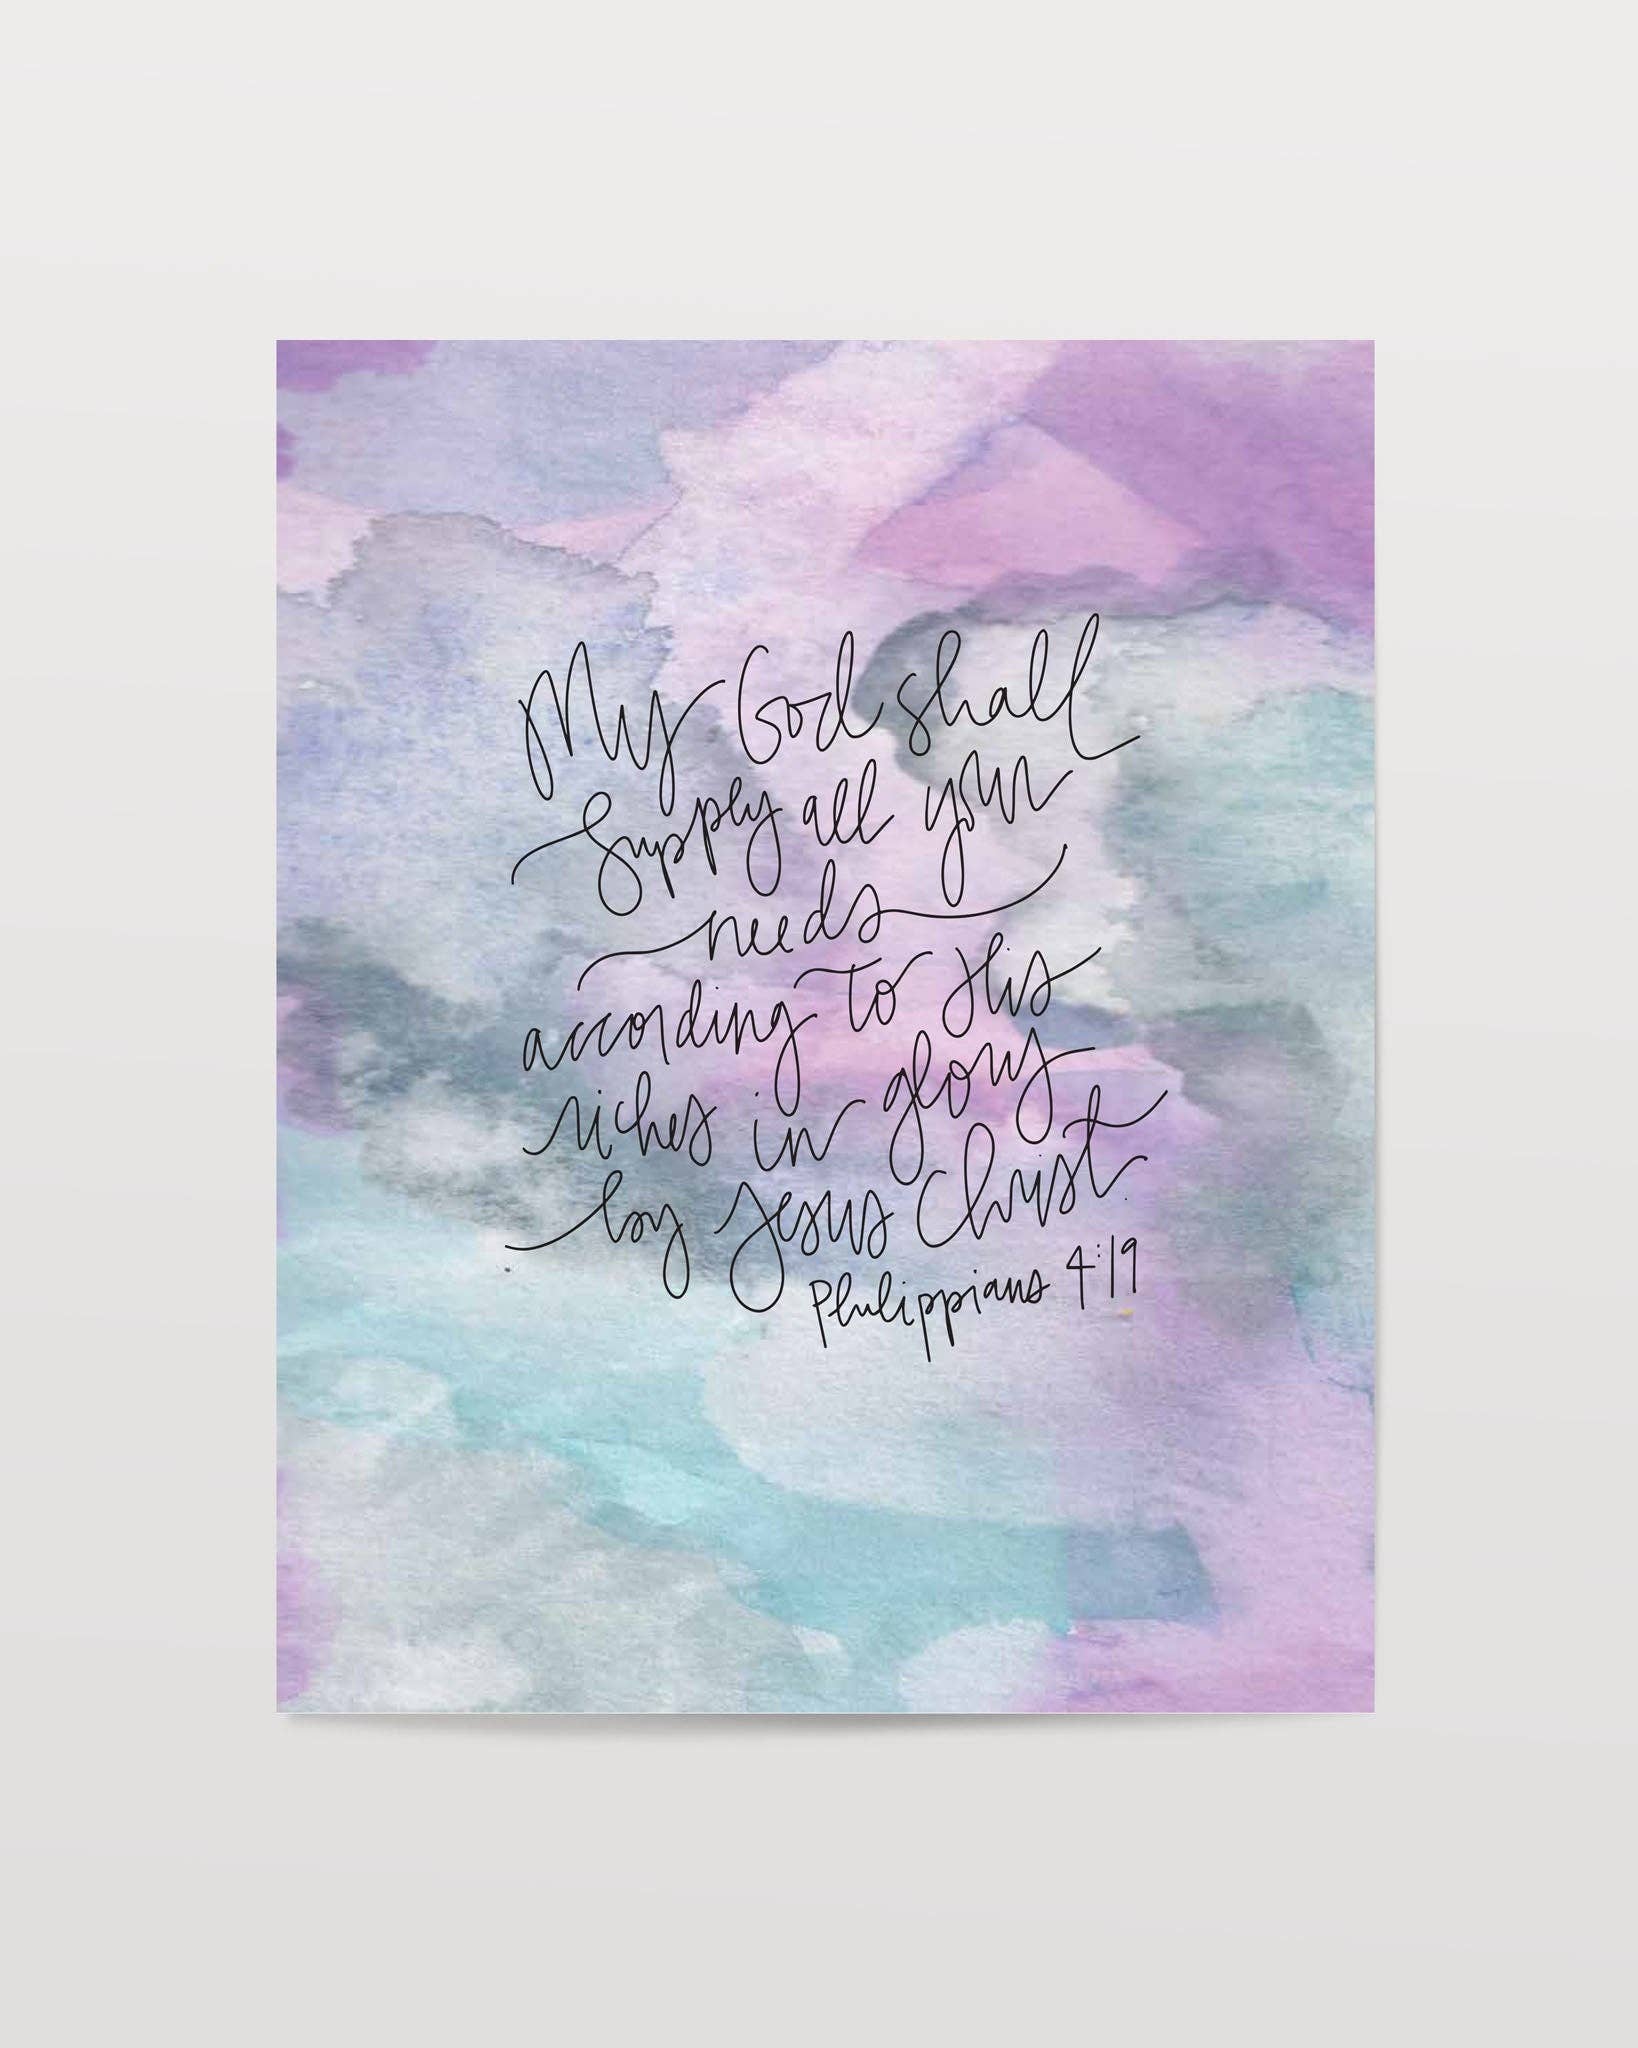 My God shall
Supply all your
needs
according to His
riches in glory
by Jesus Christ.
Philippians 4:19